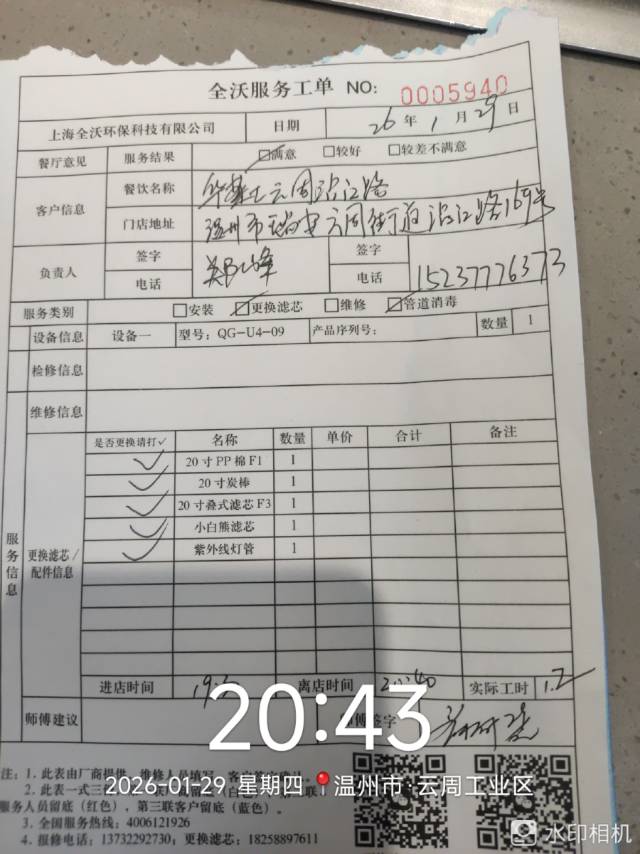 全沃服务工单 NO: 0005940
上海全沃环保科技有限公司 日期 26年1月29日
餐厅意见 服务结果 ☑满意 □较好 □较差不满意
客户信息 餐饮名称 华莱士云周沿江路
门店地址 温州市瑞安云周街道沿江路169号
负责人 签字 郑山峰 签字
电话 电话 15237776373
服务类别 □安装 ☑更换滤芯 □维修 ☑管道消毒
设备信息 设备一 型号: QG-U4-09 产品序列号: 数量 1
检修信息
维修信息
服务信息
更换滤芯/配件信息
是否更换请打✓ 名称 数量 单价 合计 备注
✓ 20寸PP棉F1 1
✓ 20寸炭棒 1
✓ 20寸叠式滤芯F3 1
✓ 小白熊滤芯 1
✓ 紫外线灯管 1
进店时间 离店时间 20:40 实际工时 1.2
师傅建议 师傅签字
20:43
2026-01-29 星期四 温州市·云周工业区
注: 1. 此表由厂商提供, 维修人员填写,
2. 此表一式三
服务人员留底(红色), 第三联客户留底(蓝色)。
3. 全国服务热线: 4006121926
4. 报修电话: 13732292730; 更换滤芯: 18258897611
水印相机